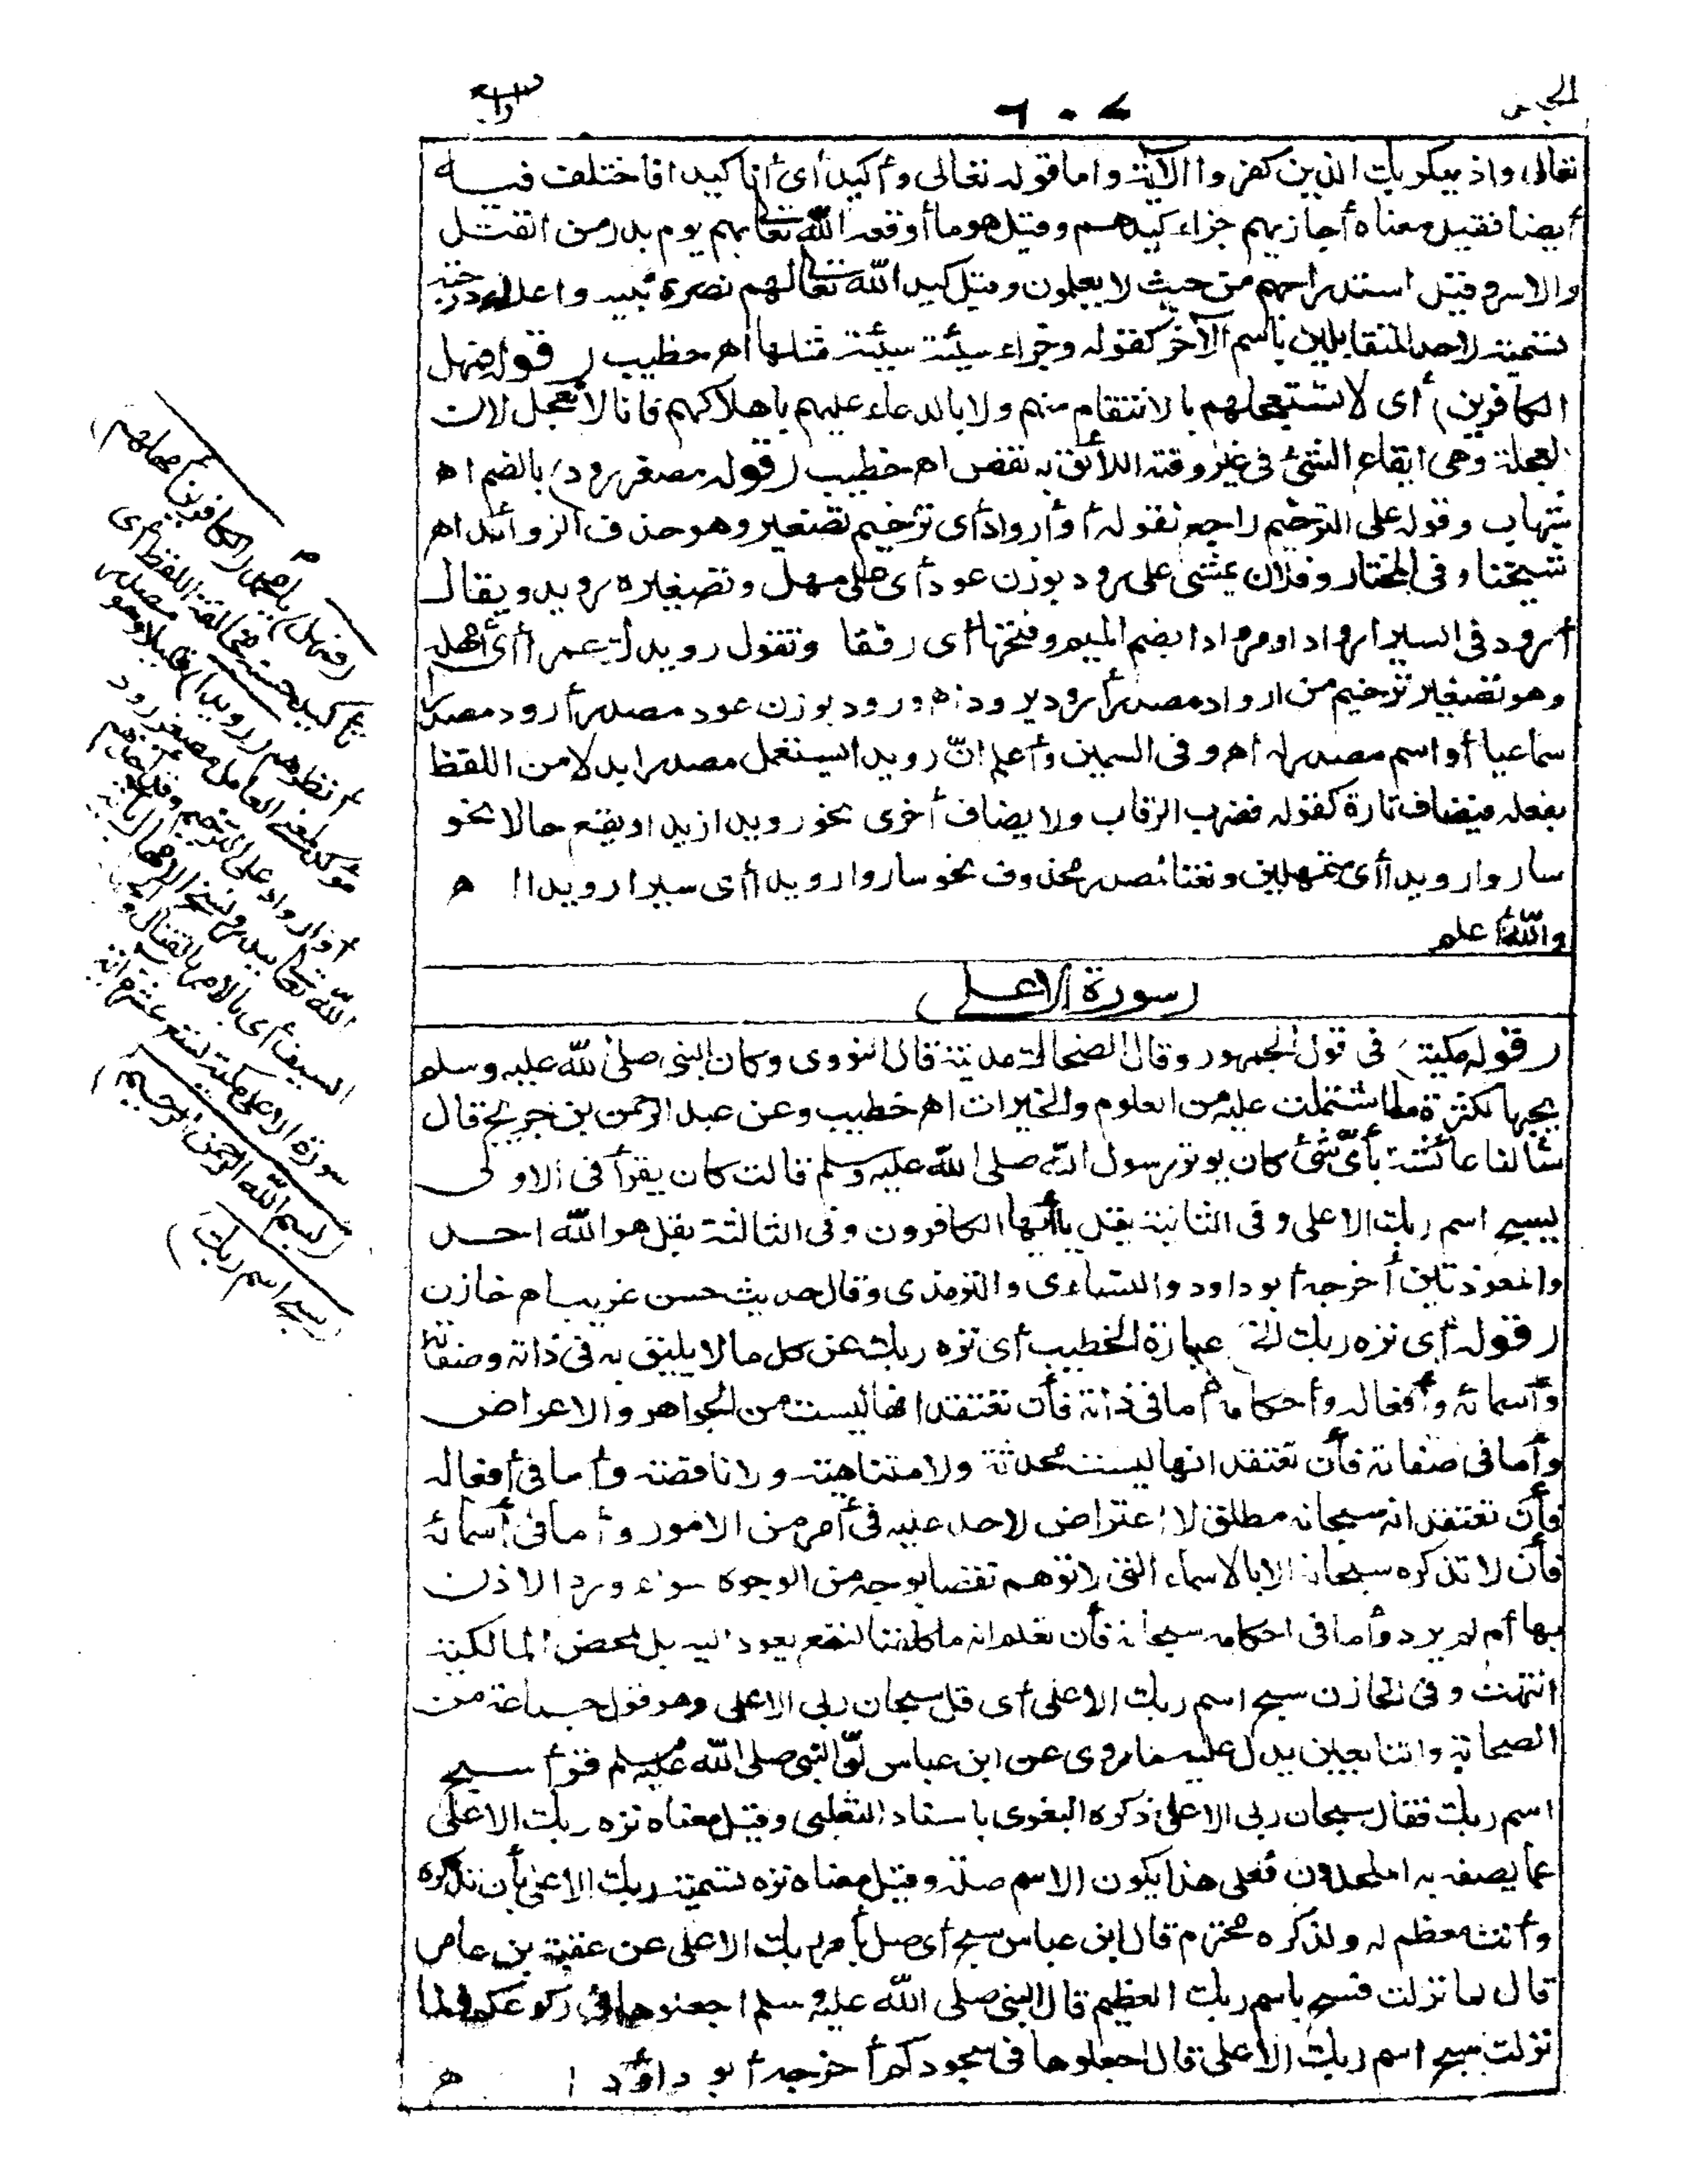 ٦٠٧
تعالى واذ يمكر بك الذين كفروا الآية واما قوله تعالى وأكيد أى أنا كيدا فاختلف فيه
أيضا فقيل معناه أجازيهم جزاء كيدهم وقيل هو ما أوقعه الله تعالى بهم يوم بدر من القتل
والاسر وقيل استدراجهم من حيث لا يعلمون وقيل كيد الله تعالى لهم نصره نبيه واعلاء درجته
تسمية لاحد المتقابلين باسم الآخر كقوله وجزاء سيئة سيئة مثلها اهـ خطيب (قوله فمهل
الكافرين) أى لا تستعجلهم بالانتقام منهم ولا بالدعاء عليهم باهلاكهم فانا لا نعجل لان
العجلة وهى ايقاع الشئ فى غير وقته اللائق به نقص اهـ خطيب (قوله مصغر رود) بالضم اهـ
شهاب وقوله على الترخيم راجع لقوله أو أرواد أى ترخيم تصغير وهو حذف الزوائد اهـ
شيخنا وفى المختار وفلان يمشى على رود بوزن عود أى على مهل وتصغيره رويد ويقال
أرود فى السير ارواد او مروادا بضم الميم وفتحها أى رفقا وتقول رويدك عمرا أى أمهله
وهو تصغير ترخيم من ارواد مصدر أرود يرود اهـ ورود بوزن عود مصدر أرود مصدرا
سماعيا أو اسم مصدر له اهـ وفى السمين وأعلم انّ رويدا يستعمل مصدرا بدلا من اللفظ
بفعله فيضاف تارة كقوله فضرب الرقاب ولا يضاف أخرى نحو رويدا زيدا ويقع حالا نحو
ساروا رويدا أى متمهلين ونعتا لمصدر محذوف نحو ساروا رويدا أى سيرا رويدا اهـ
والله أعلم
(سورة الاعلى)
(قوله مكية) فى قول الجمهور وقال الضحاك مدنية قال النووى وكان النبى صلى الله عليه وسلم
يحبها لكثرة ما اشتملت عليه من العلوم والخيرات اهـ خطيب وعن عبد الرحمن بن جريج قال
سألنا عائشة بأىّ شئ كان يوتر رسول الله صلى الله عليه وسلم قالت كان يقرأ فى الاولى
بسبح اسم ربك الاعلى وفى الثانية بقل يا أيها الكافرون وفى الثالثة بقل هو الله احد
والمعوذتين أخرجه أبو داود والنساءى والترمذى وقال حديث حسن غريب اهـ خازن
(قوله أى نزه ربك الخ) عبارة الخطيب أى نزه ربك عن كل ما لا يليق به فى ذاته وصفاته
وأسمائه وأفعاله وأحكامه أما فى ذاته فأن تعتقد انها ليست من الجواهر والاعراض
وأما فى صفاته فأن تعتقد انها ليست محدثة ولا متناهية ولا ناقصة وأما فى أفعاله
فأن تعتقد انه سبحانه مطلق لا اعتراض لاحد عليه فى أمر من الامور وأما فى أسمائه
فأن لا تذكره سبحانه الا بالاسماء التى لا توهم نقصا بوجه من الوجوه سواء ورد الاذن
بها أم لم يرد وأما فى احكامه سبحانه فأن تعلم انه ما كلفنا لنفع يعود اليه بل لمحض المالكية
انتهت وفى الخازن سبح اسم ربك الاعلى أى قل سبحان ربى الاعلى وهو قول جماعة من
الصحابة والتابعين يدل عليه ما روى عن ابن عباس أنّ النبى صلى الله عليه وسلم قرأ سبح
اسم ربك فقال سبحان ربى الاعلى ذكره البغوى باسناد الثعلبى وقيل معناه نزه ربك الاعلى
عما يصفه به الملحدون فعلى هذا يكون الاسم صلة وقيل معناه نزه تسمية ربك الاعلى بأن تذكره
وأنت معظم له ولذكره محترم قال ابن عباس سبح أى صل بأمر ربك الاعلى عن عقبة بن عامر
قال لما نزلت فسبح باسم ربك العظيم قال النبى صلى الله عليه وسلم اجعلوها فى ركوعكم ولما
نزلت سبح اسم ربك الاعلى قال اجعلوها فى سجودكم أخرجه أبو داؤد اهـ
(فمهل) يا محمد (الكافرين أمهلهم)
تأكيد حسنه مخالفة اللفظ أى
أنظرهم (رويدا) قليلا وهو مصدر
مؤكد لمعنى العامل مصغر رود
أو ارواد على الترخيم وقد أخذهم
الله تعالى ببدر ونسخ الامهال بآية
السيف أى بالامر بالقتال
سورة الاعلى مكية تسع عشرة آية
(بسم الله الرحمن الرحيم)
(سبح اسم ربك)